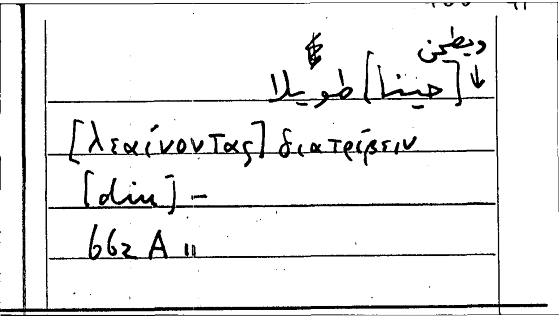 ويطحن
[حينا] طويلا
[λεαίνοντας] διατρίβειν
[diu] –
662 A 11